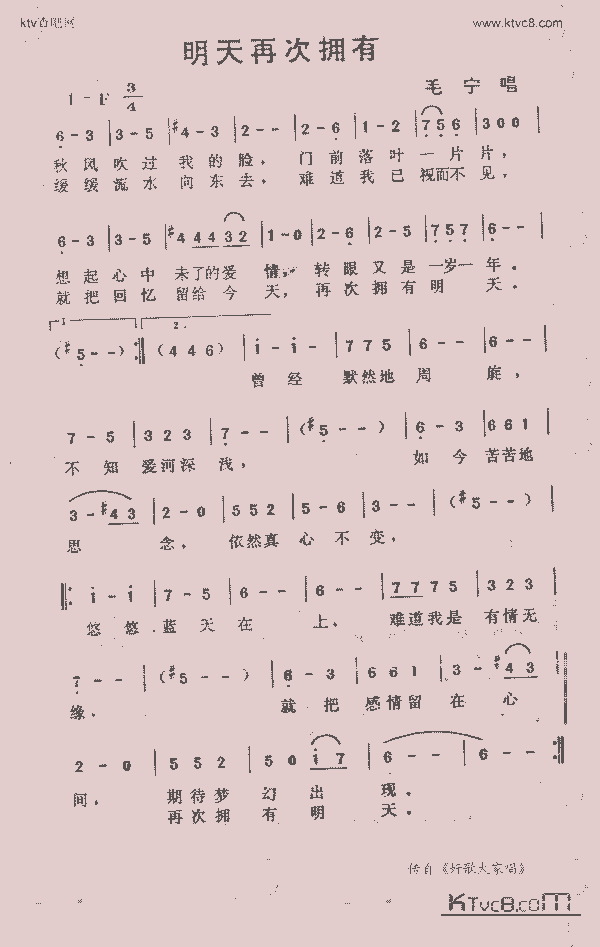 ktv吉吧网 www.ktvc8.com
明天再次拥有
1=F 3/4 毛宁唱
6-3 | 3-5 | #4-3 | 2-- | 2-6 | 1-2 | 756 | 300 |
秋风吹过我的脸，门前落叶一片片，
缓缓流水向东去，难道我已视而不见，
6-3 | 3-5 | #44432 | 1-0 | 2-6 | 2-5 | 757 | 6-- |
想起心中未了的爱情，转眼又是一岁一年。
就把回忆留给今天，再次拥有明天。
1. 2.
(#5--) :|| (446) | i-i | 775 | 6-- | 6-- |
曾经默然地周旋，
7-5 | 323 | 7-- | (#5--) | 6-3 | 661 |
不知爱河深浅，如今苦苦地
3-#43 | 2-0 | 552 | 5-6 | 3-- | (#5--) |
思念，依然真心不变，
||: i-i | 7-5 | 6-- | 6-- | 7775 | 323 |
悠悠蓝天在上，难道我是有情无
7-- | (#5--) | 6-3 | 661 | 3-- | #43 |
缘。就把感情留在心
2-0 | 552 | 50i7 | 6-- | 6-- :||
间，期待梦幻出现。
再次拥有明天。
传自《好歌大家唱》
KTvc8.coM